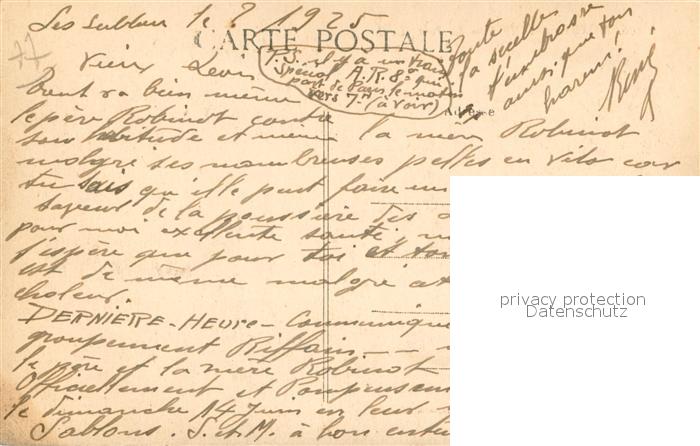 Les Sablons le ? 1925
CARTE POSTALE
Vieux Louis
P.S. il y a un train
spécial A.R. 8° qui
part de Paris le matin
vers 7h (à voir)
toute
la sequelle
t'embrasse
ainsi que ton
harem!
René
Adresse
tout va bien même
le père Robinot contre
son habitude et même la mère Robinot
malgré ses nombreuses pelles en vélo car
tu sais qu'elle peut faire un
saveur de la poussière des
pour moi excellente santé,
j'espère que pour toi et ton
est de même malgré
chaleur.
DERNIÈRE-HEURE - Communiqué
groupement Riffain
le père et la mère Robinot
Officiellement et Pompeusem
le dimanche 14 Juin en leur
Sablons. S. et M. à bon
privacy protection
Datenschutz